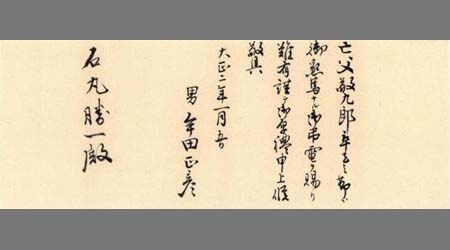 亡父敬九郎卒去之節ハ
御懇篤ナル御弔電ヲ賜リ
難有謹テ御厚禮申上候
敬具
大正二年一月
男 牟田正彦
石丸勝一殿